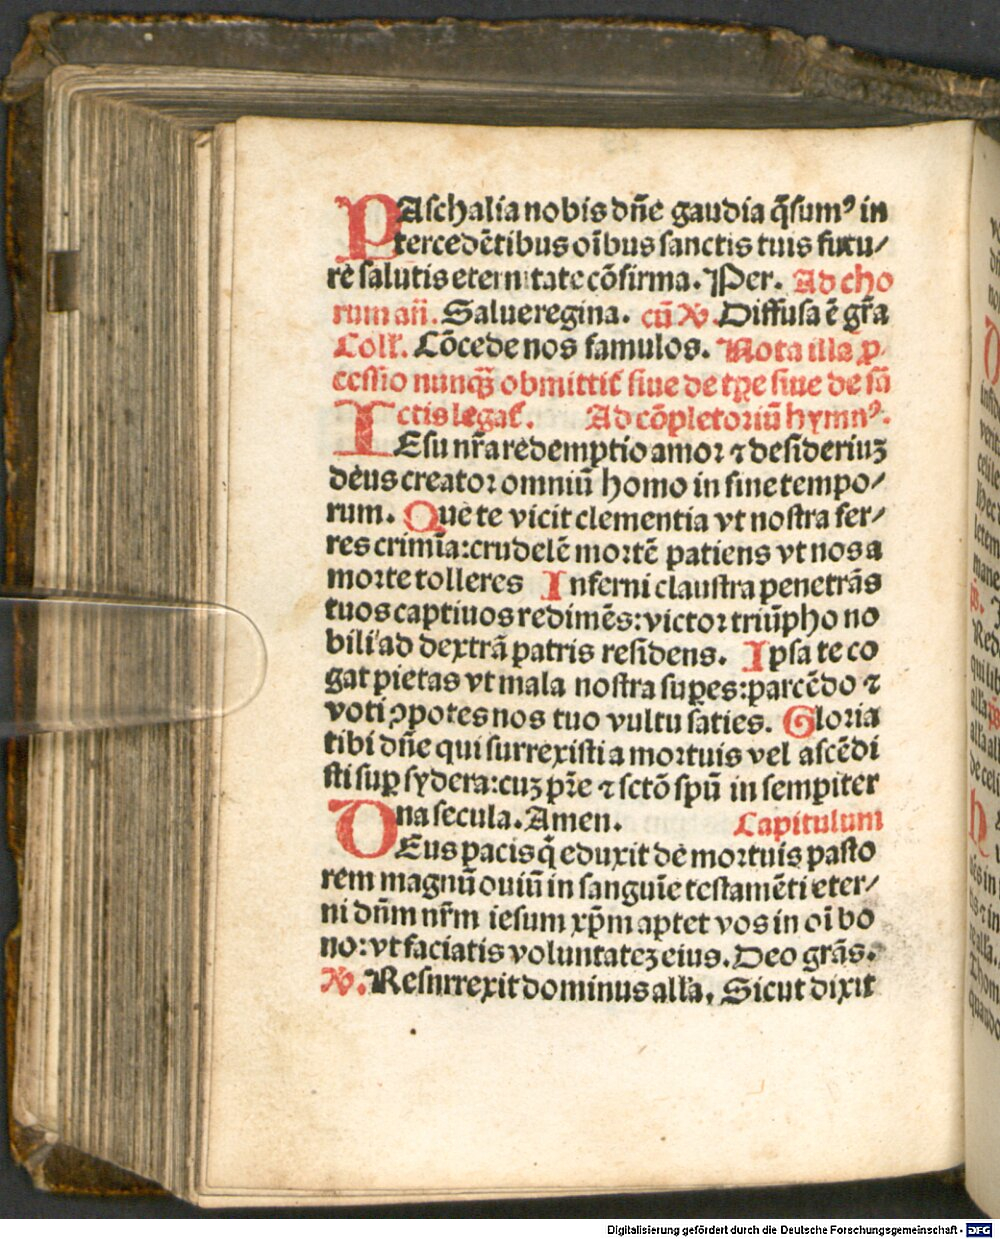 PAschalia nobis dñe gaudia q̃sumꝰ in
tercedẽtibus oĩbus sanctis tuis futu/
re salutis eternitate cõfirma. Per. Ad cho
rum añ. Salue regina. cũ ℣. Diffusa ẽ gr̃a
Coll'. Cõcede nos famulos. Nota illa ꝓ
cessio nunqꝫ̃ obmittit̃ siue de tp̃e siue de sã
ctis legat̃. Ad cõpletoriũ hymnꝰ.
IEsu nr̃a redemptio amor ⁊ desideriuꝫ
deus creator omniũ homo in fine tempo/
rum. Que te vicit clementia vt nostra fer/
res crimĩa: crudelẽ mortẽ patiens vt nos a
morte tolleres Inferni claustra penetrãs
tuos captiuos redimẽs: victor triũpho no
bili ad dextrã patris residens. Ipsa te co
gat pietas vt mala nostra suꝑes: parcẽdo ⁊
voti ꝯpotes nos tuo vultu saties. Gloria
tibi dñe qui surrexisti a mortuis vel ascẽdi
sti suꝑ sydera: cuꝫ pr̃e ⁊ sctõ spũ in sempiter
na secula. Amen. Capitulum
DEus pacis q̃ eduxit de mortuis pasto
rem magnũ ouiũ in sanguĩe testamẽti eter/
ni dñm nr̃m iesum xp̃m aptet vos in oĩ bo
no: vt faciatis voluntateꝫ eius. Deo grãs.
℣. Resurrexit dominus all'a. Sicut dixit
Digitalisierung gefördert durch die Deutsche Forschungsgemeinschaft - DFG